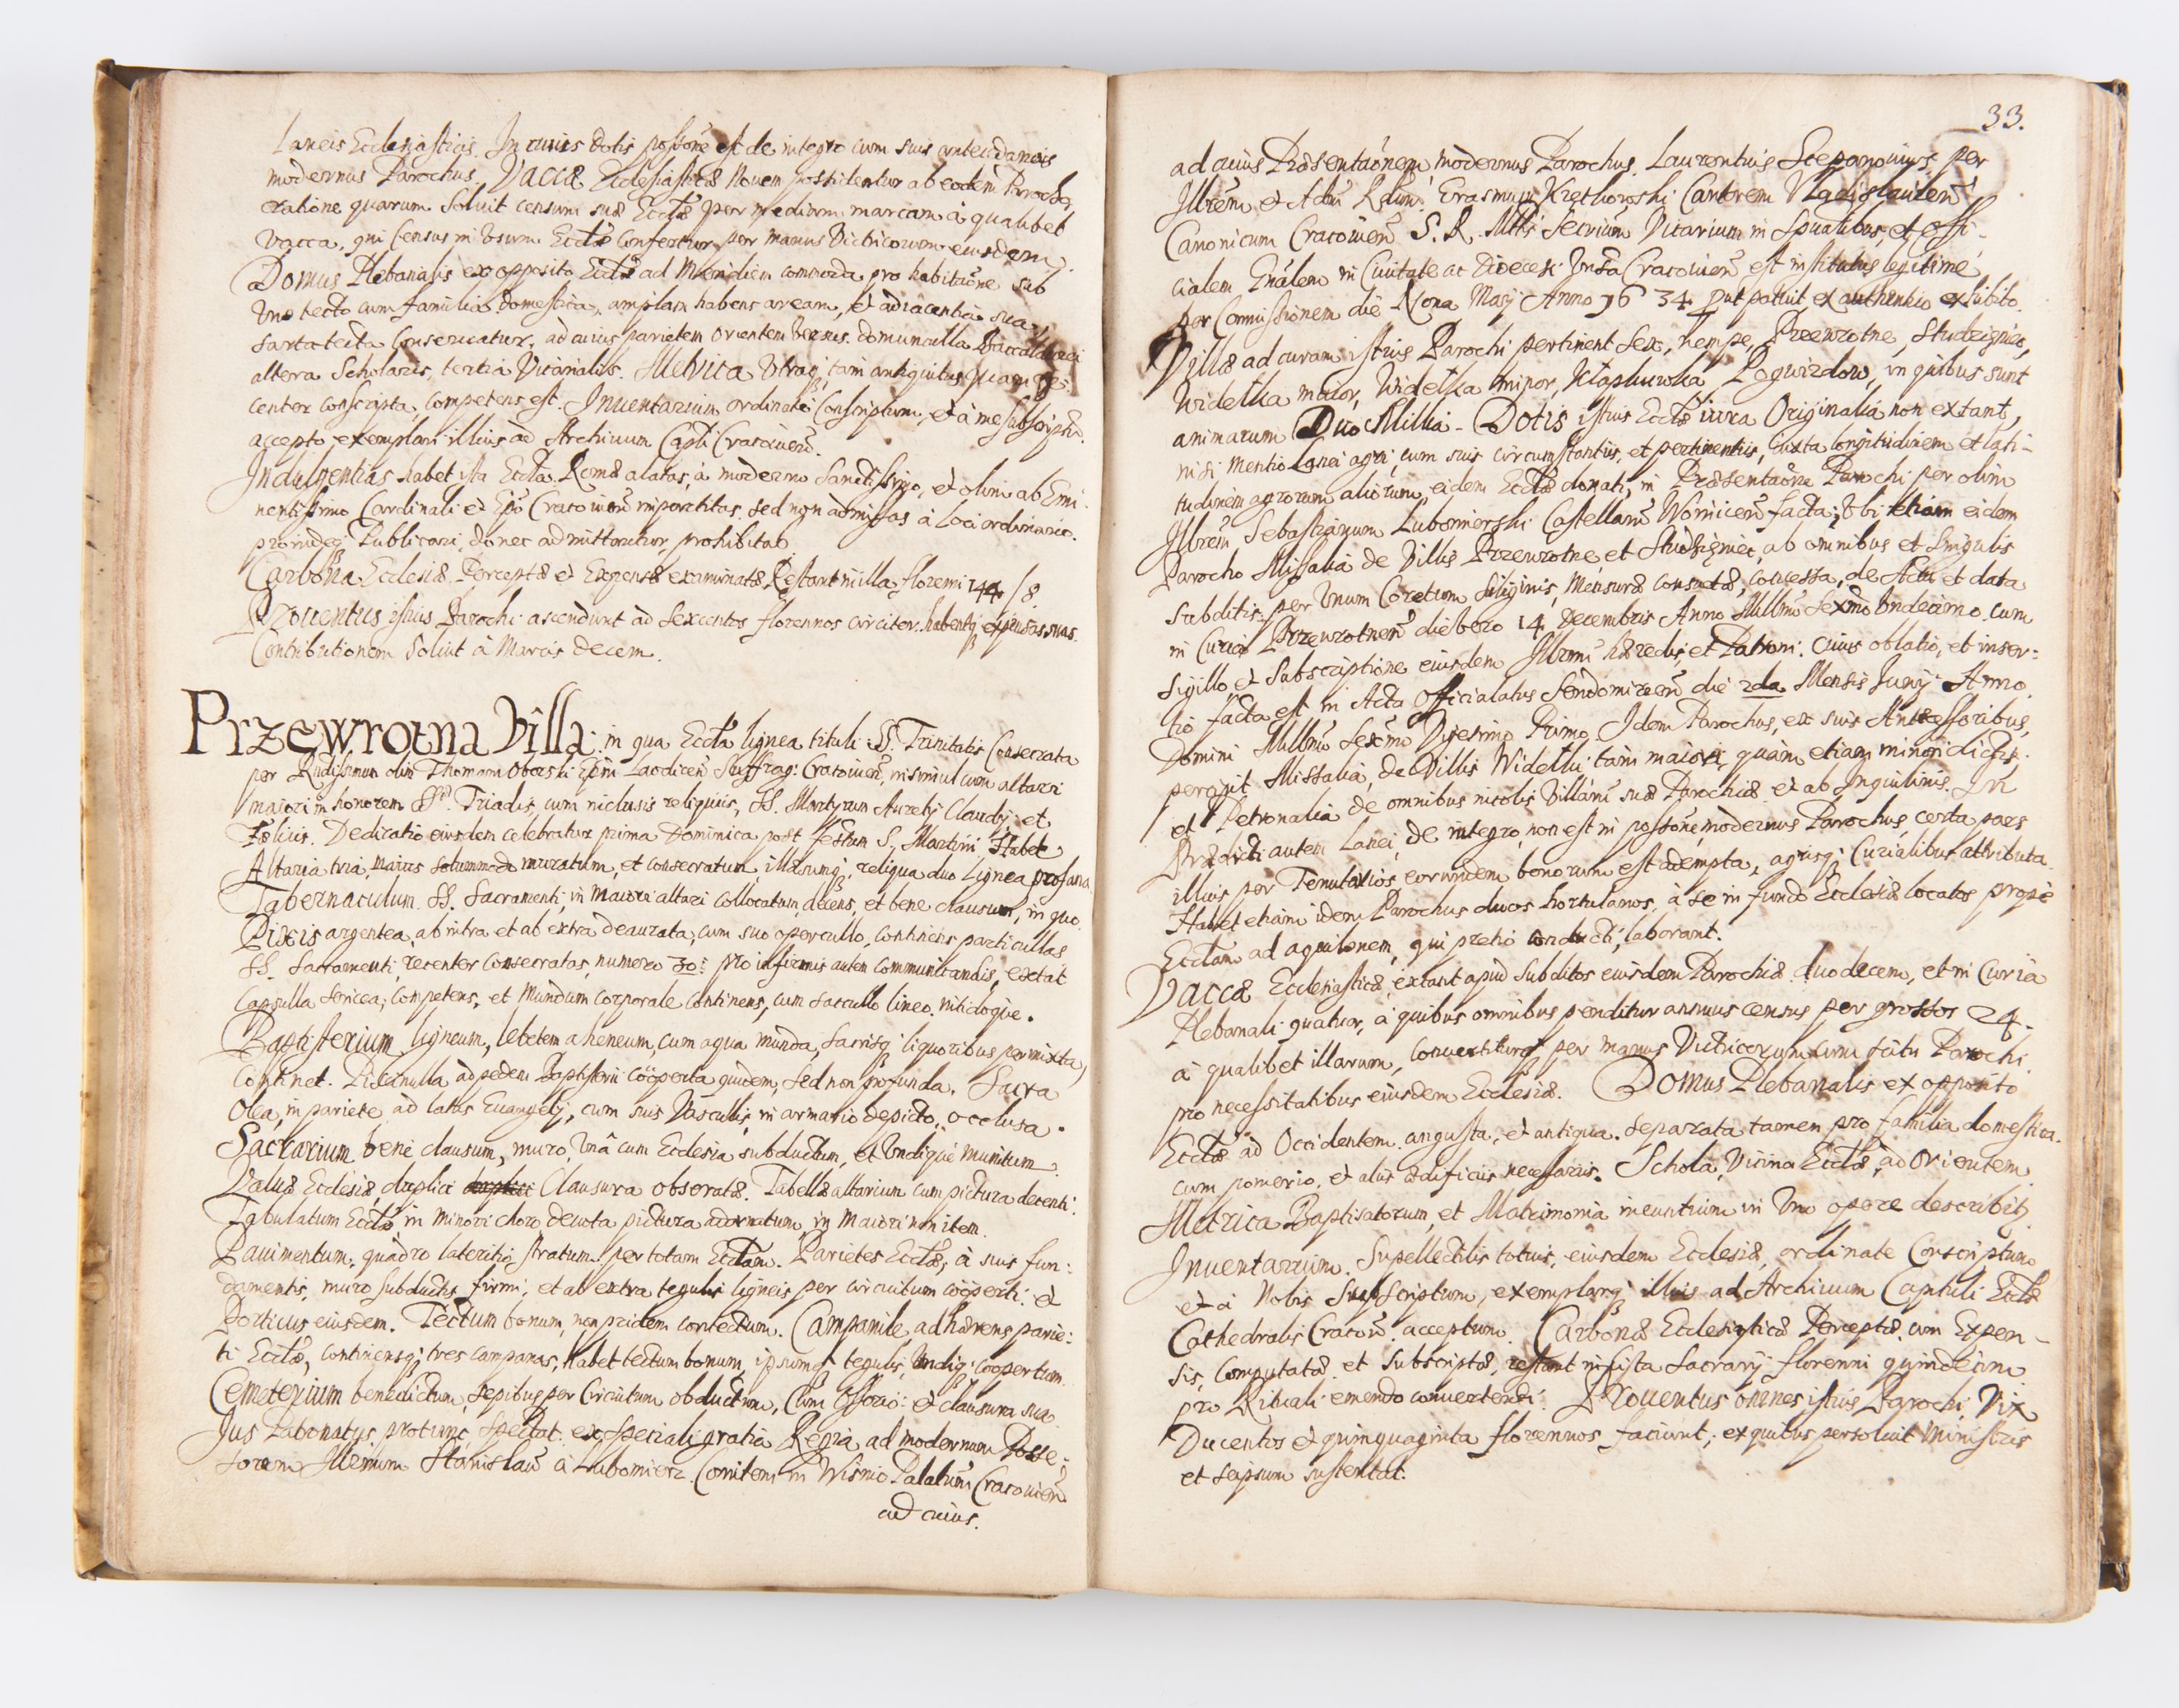 Laneis Ecclesiasticis. In cuius dotis possõne est de integro cum suis
modernus Parochus. Vaccæ Ecclesiasticæ Novem possidentur ab eodem Parocho,
ratione quarum soluit censum suæ Ecclæ per mediam marcam à qualibet
Vacca, qui Census in Vsum Ecclæ Confertur per manus Victricorum eiusdem.
Domus Plebanalis ex opposito Ecclæ ad Meridiem commoda pro habitaõne sub
Vno tecto cum familia domestica, amplam habens aream, et adiacentia sua
sarta tecta Conseruatur, ad cuius parietem Orientem Versus domuncula
altera Scholaris, tertia Vicarialis. Metrica Vtraq; tam antiquitus quam re-
center conscripta, competens est. Inuentarium ordinatè Conscriptum, et à me subscriptũ,
accepto exemplari illius ad Archiuum Capli Cracouieñ.
Indulgentias habet ista Eccla Romæ alatas, à moderno Sanctissimo, et olim ab Emi-
nentissimo Cardinali et Epõ Cracouieñ impartitas, sed non admissas à Loci ordinario.
proindeq; Publicari, donec admittantur, prohibitas
Carbona Ecclesiæ, Perceptæ et Expensæ examinatæ Restant in illa floreni 144 / 8.
Prouentus istius Parochi ascendunt ad sexcentos florennos circiter habentq; expensas suas.
Contributionem Soluit à Marcis decem.
Przewrotna Villa: in qua Eccla lignea tituli SS. Trinitatis Consecrata
per Rndissimum olim Thomam Oborski Epũm Laodiceñ Suffrag: Cracouieñ, insimul cum altari
maiori in honorem SS. Triadis, cum inclusis reliquiis, SS. Martyrum Aurelij Claudij et
Felicis. Dedicatio eiusdem celebratur prima Dominica post festum S. Martini. Habet
Altaria tria, maius solummodo muratum, et consecratum, illæsumq; reliqua duo Lignea profana.
Tabernaculum SS. Sacramenti, in Maiori altari collocatum, decens, et bene clausum, in quo
Pixis argentea, ab intra et ab extra deaurata, cum suo operculo, continens particullas
SS. Sacramenti, recenter consecratas, numero 30: pro infirmis autem communicandis, extat
Capsulla sericea, competens, et Mundum corporale continens, cum sacculo lineo nitidoque.
Baptisterium ligneum, lebetem aheneum, cum aqua munda, sacrisq; liquoribus permixta,
continet. Piscinulla ad pedem Baptisterii coöperta quidem, sed non profunda. Sacra
Olea, in pariete ad latus Euangelij, cum suis Vasculis, in armario depicto, occlusa.
Sacrarium bene clausum, muro, Vnâ cum Ecclesia subductum, et Vndique Munitum.
Valuæ Ecclesiæ duplici Clausura obseratæ. Tabellæ altarium cum pictura decenti.
Tabulatum Ecclæ in Minori choro deuota pictura adornatum, in Maiori non item.
Pauimentum, quadro lateritio stratum per totam Ecclam. Parietes Ecclæ, à suis fun-
damentis, muro subductis, firmi, et ab extra tegulis ligneis per circuitum coöperti: et
Porticus eiusdem. Tectum bonum, non pridem confectum. Campanile adhærens parie-
ti Ecclæ, continensq; tres campanas, habet tectum bonum, ipsumq; tegulis Vndiq; Coopertum.
Cemeterium benedictum, sepibus per Circuitum obductum, Cum Ossorio: et clausura sua
Jus Patronatus pro tunc, spectat ex speciali gratia Regia ad modernum Posse-
sorem Illrmum Stanislaũ à Lubomierz Comitem in Wisnic Palatinũ Cracouieñ
ad cuius.
33.
ad cuius Præsentaõnem modernus Parochus Laurentius per
Illrem et Adm Rdũm Erasmum Kretkowski Cantorem Vladislauieñ
Canonicum Cracouieñ S. R. Mttis Secrium Vicarium in Spualibus, et Offi-
cialem Gñalem in Ciuitate ac Diœcesi Cracouieñ est institutus legitime
per Commissionem die Nona Maij Anno 1634 put patuit ex authentico exhibito.
Villæ ad curam istius Parochi pertinent Sex, nempe, Przewrotne, Studzieniec,
Widełka maior, Widełka minor, Kłapkuwka Pogwizdow, in quibus sunt
animarum Duo Millia. Dotis istius Ecclæ iura Originalia non extant,
nisi mentio Lanei agri, cum suis circumstantiis, et pertinentiis, iuxta longitudinem et lati-
tudinem agrorum aliorum, eidem Ecclæ donati, in Præsentaõne Parochi per olim
Illrem Sebastianum Lubomierski Castellanũ Woiniceñ facta, Vbi etiam eidem
Parocho Missalia de Villis Przewrotne et Studzieniec, ab omnibus et singulis
subditis, per Vnum Coretum Siliginis, Mensuræ consuetæ, concessa, de Actu et data
in Curia Przewrotneñ die vero 14 Decembris Anno Millmo Sexcmo Vndecimo cum
Sigillo et Subscriptione eiusdem Illrmi hæredis, et Patroni. cuius oblatio, et inser-
tio facta est in Acta Officialatus Sendomirieñ die 2da Mensis Junij Anno
Domini Millmo Sexcmo Vigesimo Primo. Idem Parochus, ex suis Antecessoribus,
percipit Missalia, de Villis Widełki tam maiori, quam etiam minori dictis.
et Petronalia de omnibus incolis Villarũ suæ Parochiæ et ab Inquilinis. In
Prædicti autem Lanei, de integro, non est in possõne modernus Parochus, certa pars
illius per Tenutarios eorumdem bonorum est adempta, agrisq; Curialibus attributa
Habet etiam idem Parochus duos hortulanos, à se in fundo Ecclesiæ locatos prope
Ecclam ad aquilonem, qui pretio conducti, laborant.
Vaccæ Ecclesiasticæ extant apud subditos eiusdem Parochiæ duodecem, et in Curia
Plebanali quatuor, à quibus omnibus penditur annuus census per grossos 24.
à qualibet illarum, conuertiturq; per manus Victricorum cum scitu Parochi
pro necessitatibus eiusdem Ecclesiæ. Domus Plebanalis ex opposito
Ecclæ ad Occidentem angusta, et antiqua. separata tamen pro familia domestica.
cum pomerio, et aliis ædificiis necessariis. Schola, Vicina Ecclæ, ad Orientem.
Metrica Baptisatorum, et Matrimonia ineuntium in Vno opere describitr
Inuentarium Supellectilis totius, eiusdem Ecclesiæ, ordinate Conscriptum
et à Nobis Supscriptum, exemplarq; illius ad Archiuum Capituli Ecclæ
Cathedralis Cracouieñ acceptum. Carbonæ Ecclesiasticæ Perceptæ cum Expen-
sis, computatæ et subscriptæ, restant in Cista Sacrarij florenni quindecim
pro Rituali emendo conuertendi. Prouentus omnes istius Parochi Vix
Ducentos et quinquaginta florennos faciunt, ex quibus persoluit Ministris
et seipsum sustentat.